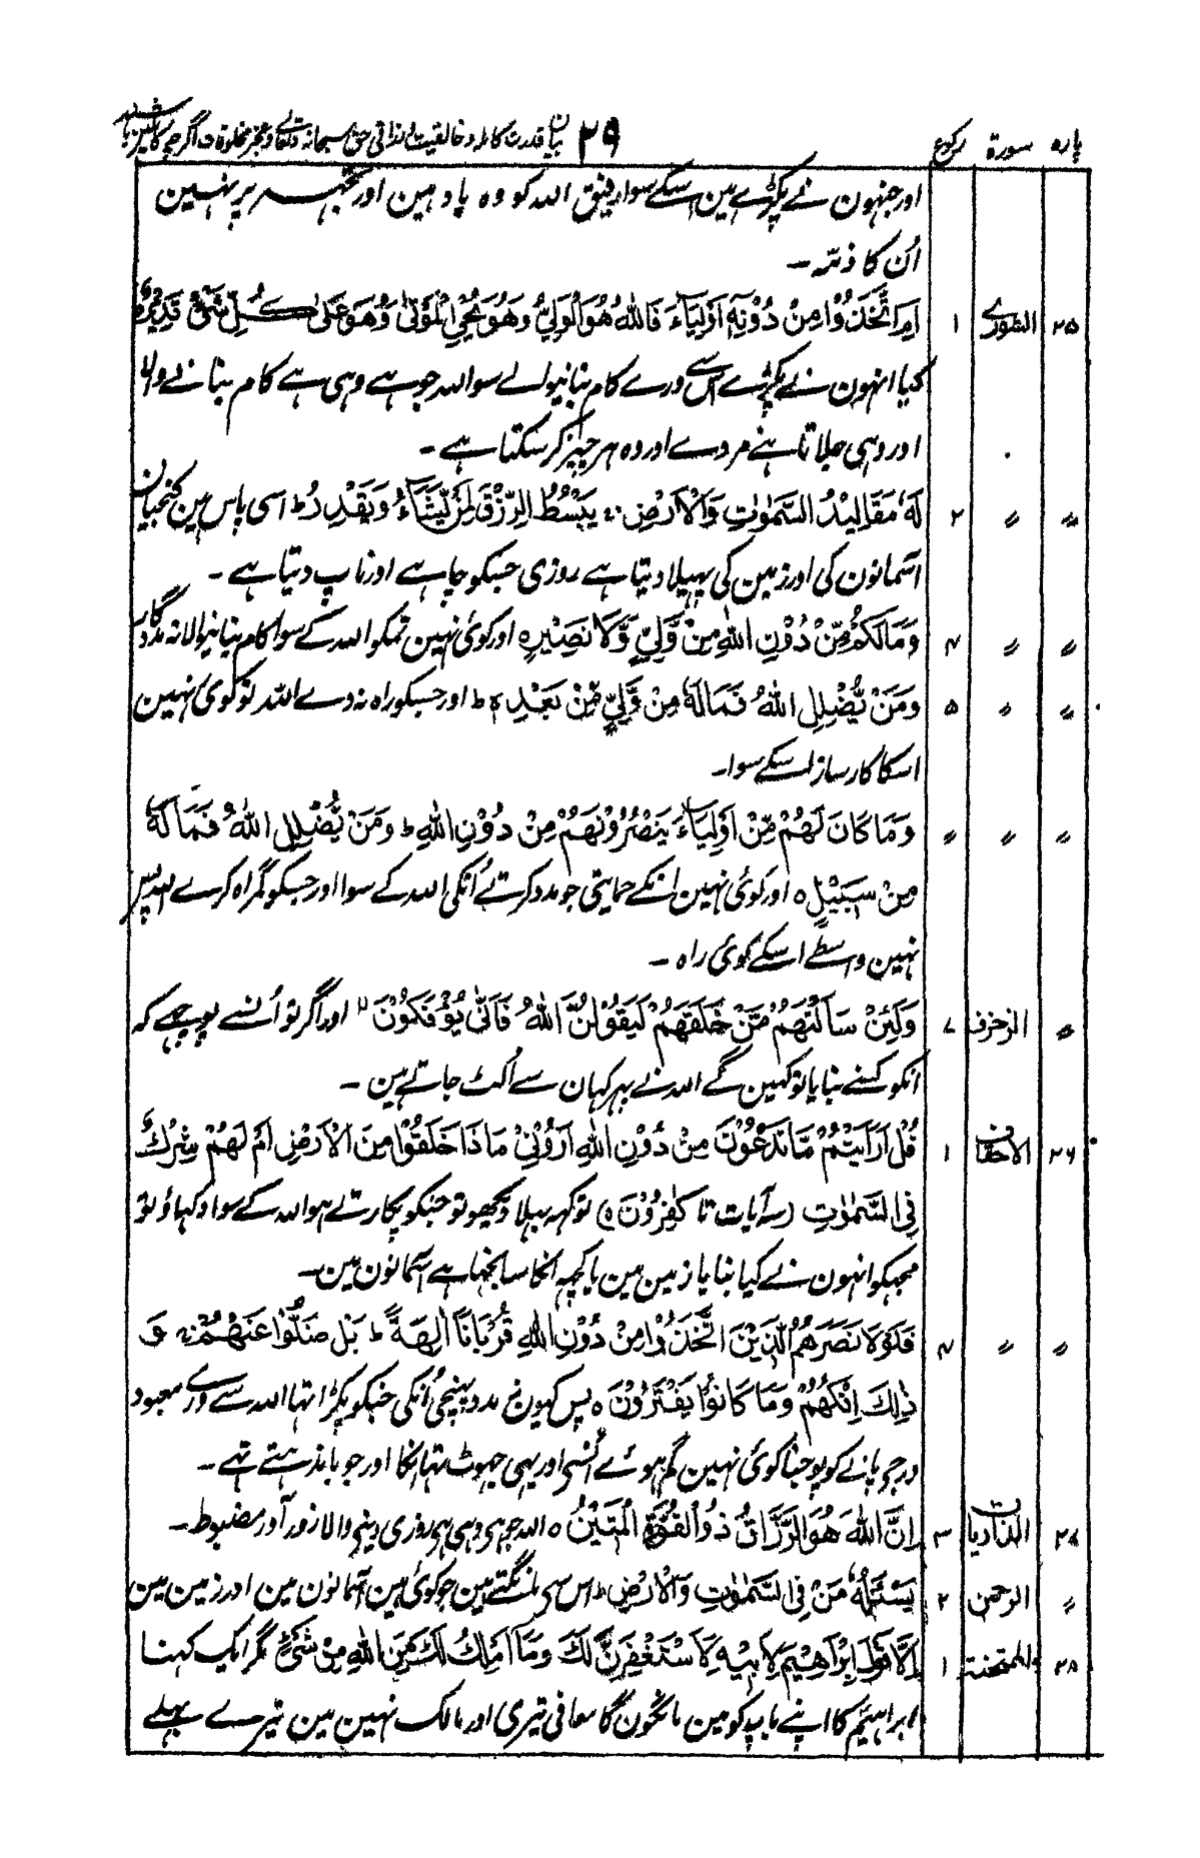 پارہ سورۃ رکوع ۲۹ بیان قدرت کاملہ و خالقیت
اور جنہون نے پکڑے ہین اسکے سوا رفیق اللہ کو وہ یاد ہین اور تجہہ پر نہین
اُن کا ذمّہ ۔
۲۵ الشوریٰ ۱ اَمِ اتَّخَذُوْا مِنْ دُوْنِہٖٓ اَوْلِیَآءَ فَاللّٰہُ ھُوَ الْوَلِیُّ وَھُوَ یُحْیِ الْمَوْتٰی وَھُوَ عَلٰی کُلِّ شَیْءٍ قَدِیْرٌ ہ
کیا انہون نے پکڑے اس سے ورے کام بنانیوالے سو اللہ جو ہے وہی ہے کام بنانے والا
اور وہی جلاتا ہے مردے اور وہ ہر چیز کر سکتا ہے ۔
〃 〃 ۲ لَہٗ مَقَالِیْدُ السَّمٰوٰتِ وَالْاَرْضِ ۚ یَبْسُطُ الرِّزْقَ لِمَنْ یَّشَآءُ وَیَقْدِرُ ط اسی پاس ہین کنجیان
آسمانون کی اور زمین کی پہیلا دیتا ہے روزی جسکو چاہے اور ناپ دیتا ہے ۔
〃 〃 ۴ وَمَا لَکُمْ مِّنْ دُوْنِ اللّٰہِ مِنْ وَّلِیٍّ وَّلَا نَصِیْرٍ ہ اور کوئی نہین تمکو اللہ کے سوا کام بنانیوالا نہ مددگار
〃 〃 ۵ وَمَنْ یُّضْلِلِ اللّٰہُ فَمَا لَہٗ مِنْ وَّلِیٍّ مِّنْ بَعْدِہٖ ط اور جسکو راہ نہ دے اللہ تو کوئی نہین
اسکا کارساز اسکے سوا۔
〃 〃 〃 وَمَا کَانَ لَھُمْ مِّنْ اَوْلِیَآءَ یَنْصُرُوْنَھُمْ مِنْ دُوْنِ اللّٰہِ ط وَمَنْ یُّضْلِلِ اللّٰہُ فَمَا لَہٗ
مِنْ سَبِیْلٍ ہ اور کوئی نہین انکے حمایتی جو مدد کرتے اُنکی اللہ کے سوا اور جسکو گمراہ کرے اللہ پس
نہین واسطے اسکے کوئی راہ ۔
〃 الزخرف ۷ وَلَئِنْ سَاَلْتَھُمْ مَّنْ خَلَقَھُمْ لَیَقُوْلُنَّ اللّٰہُ فَاَنّٰی یُؤْفَکُوْنَ اور اگر تو اُنسے پوچھے کہ
انکو کسنے بنایا تو کہین گے اللہ نے پہر کہان سے اُلٹ جاتے ہین ۔
۲۶ الاحقاف ۱ قُلْ اَرَاَیْتُمْ مَّا تَدْعُوْنَ مِنْ دُوْنِ اللّٰہِ اَرُوْنِیْ مَاذَا خَلَقُوْا مِنَ الْاَرْضِ اَمْ لَھُمْ شِرْکٌ
فِی السَّمٰوٰتِ (سہ آیات تا کٰفِرُوْنَ ہ) تو کہہ بہلا دیکھو تو جنکو پکارتے ہو اللہ کے سوا دکہاؤ تو
مجہکو انہون نے کیا بنایا زمین مین یا کچہہ انکا ساجہا ہے آسمانون مین۔
〃 〃 ۴ فَلَوْلَا نَصَرَھُمُ الَّذِیْنَ اتَّخَذُوْا مِنْ دُوْنِ اللّٰہِ قُرْبَانًا اٰلِھَۃً ط بَلْ ضَلُّوْا عَنْھُمْ ۚ وَ
ذٰلِکَ اِفْکُھُمْ وَمَا کَانُوْا یَفْتَرُوْنَ ہ پس کیون نہ مدد پہنچی اُنکی جنکو پکڑا تہا اللہ سے ورے معبود
درجے پانے کو پوجنا کوئی نہین گم ہوئے اُنسے اور یہی جہوٹ تہا انکا اور جو باندہتے تہے ۔
۲۷ الذاریات ۳ اِنَّ اللّٰہَ ھُوَ الرَّزَّاقُ ذُو الْقُوَّۃِ الْمَتِیْنُ ہ اللہ جو ہی وہی ہی روزی دینے والا زور آور مضبوط ۔
〃 الرحمن ۲ یَسْئَلُہٗ مَنْ فِی السَّمٰوٰتِ وَالْاَرْضِ ط اس سی مانگتے ہین جو کوئی ہین آسمانون مین اور زمین مین
۲۸ الممتحنۃ ۱ اِلَّا قَوْلَ اِبْرَاھِیْمَ لِاَبِیْہِ لَاَسْتَغْفِرَنَّ لَکَ وَمَا اَمْلِکُ لَکَ مِنَ اللّٰہِ مِنْ شَیْءٍ ط مگر ایک کہنا
ابراہیم کا اپنے باپ کو مین مانگون گا معافی تیری اور مالک نہین مین تیرے بہلے